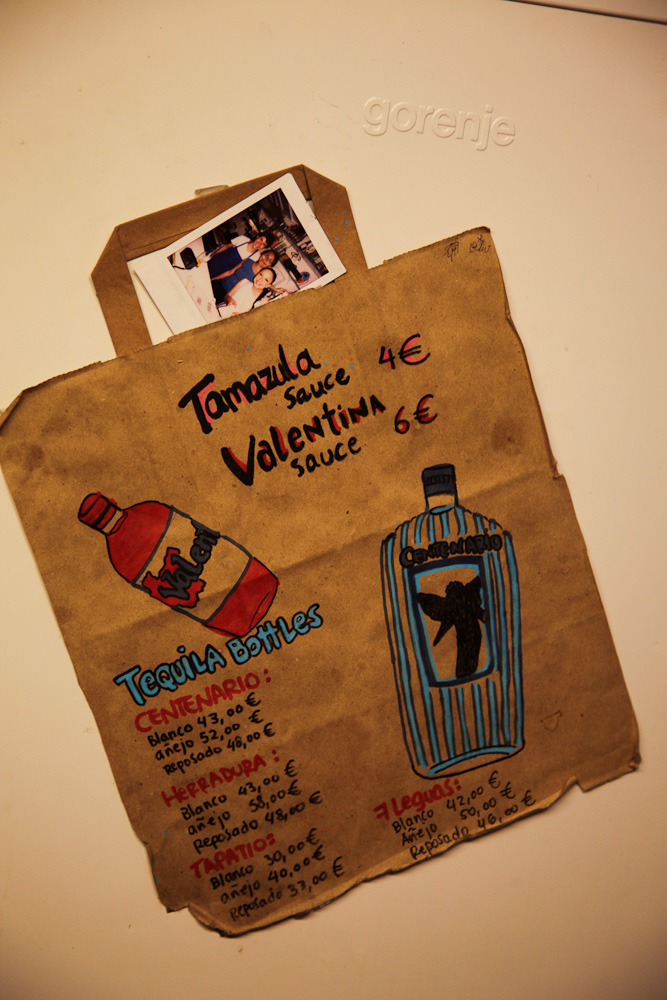 gorenje
Tamazula
sauce 4€
Valentina
sauce 6€
Valent
CENTENARIO
TEQUILA BOTTLES
CENTENARIO:
Blanco 43,00 €
añejo 52,00 €
Reposado 48,00 €
HERRADURA:
Blanco 43,00 €
añejo 58,00 €
Reposado 48,00 €
TAPATIO:
Blanco 30,00 €
añejo 40,00 €
Reposado 33,00 €
7 Leguas:
Blanco 42,00 €
Añejo 50,00 €
Reposado 46,00 €